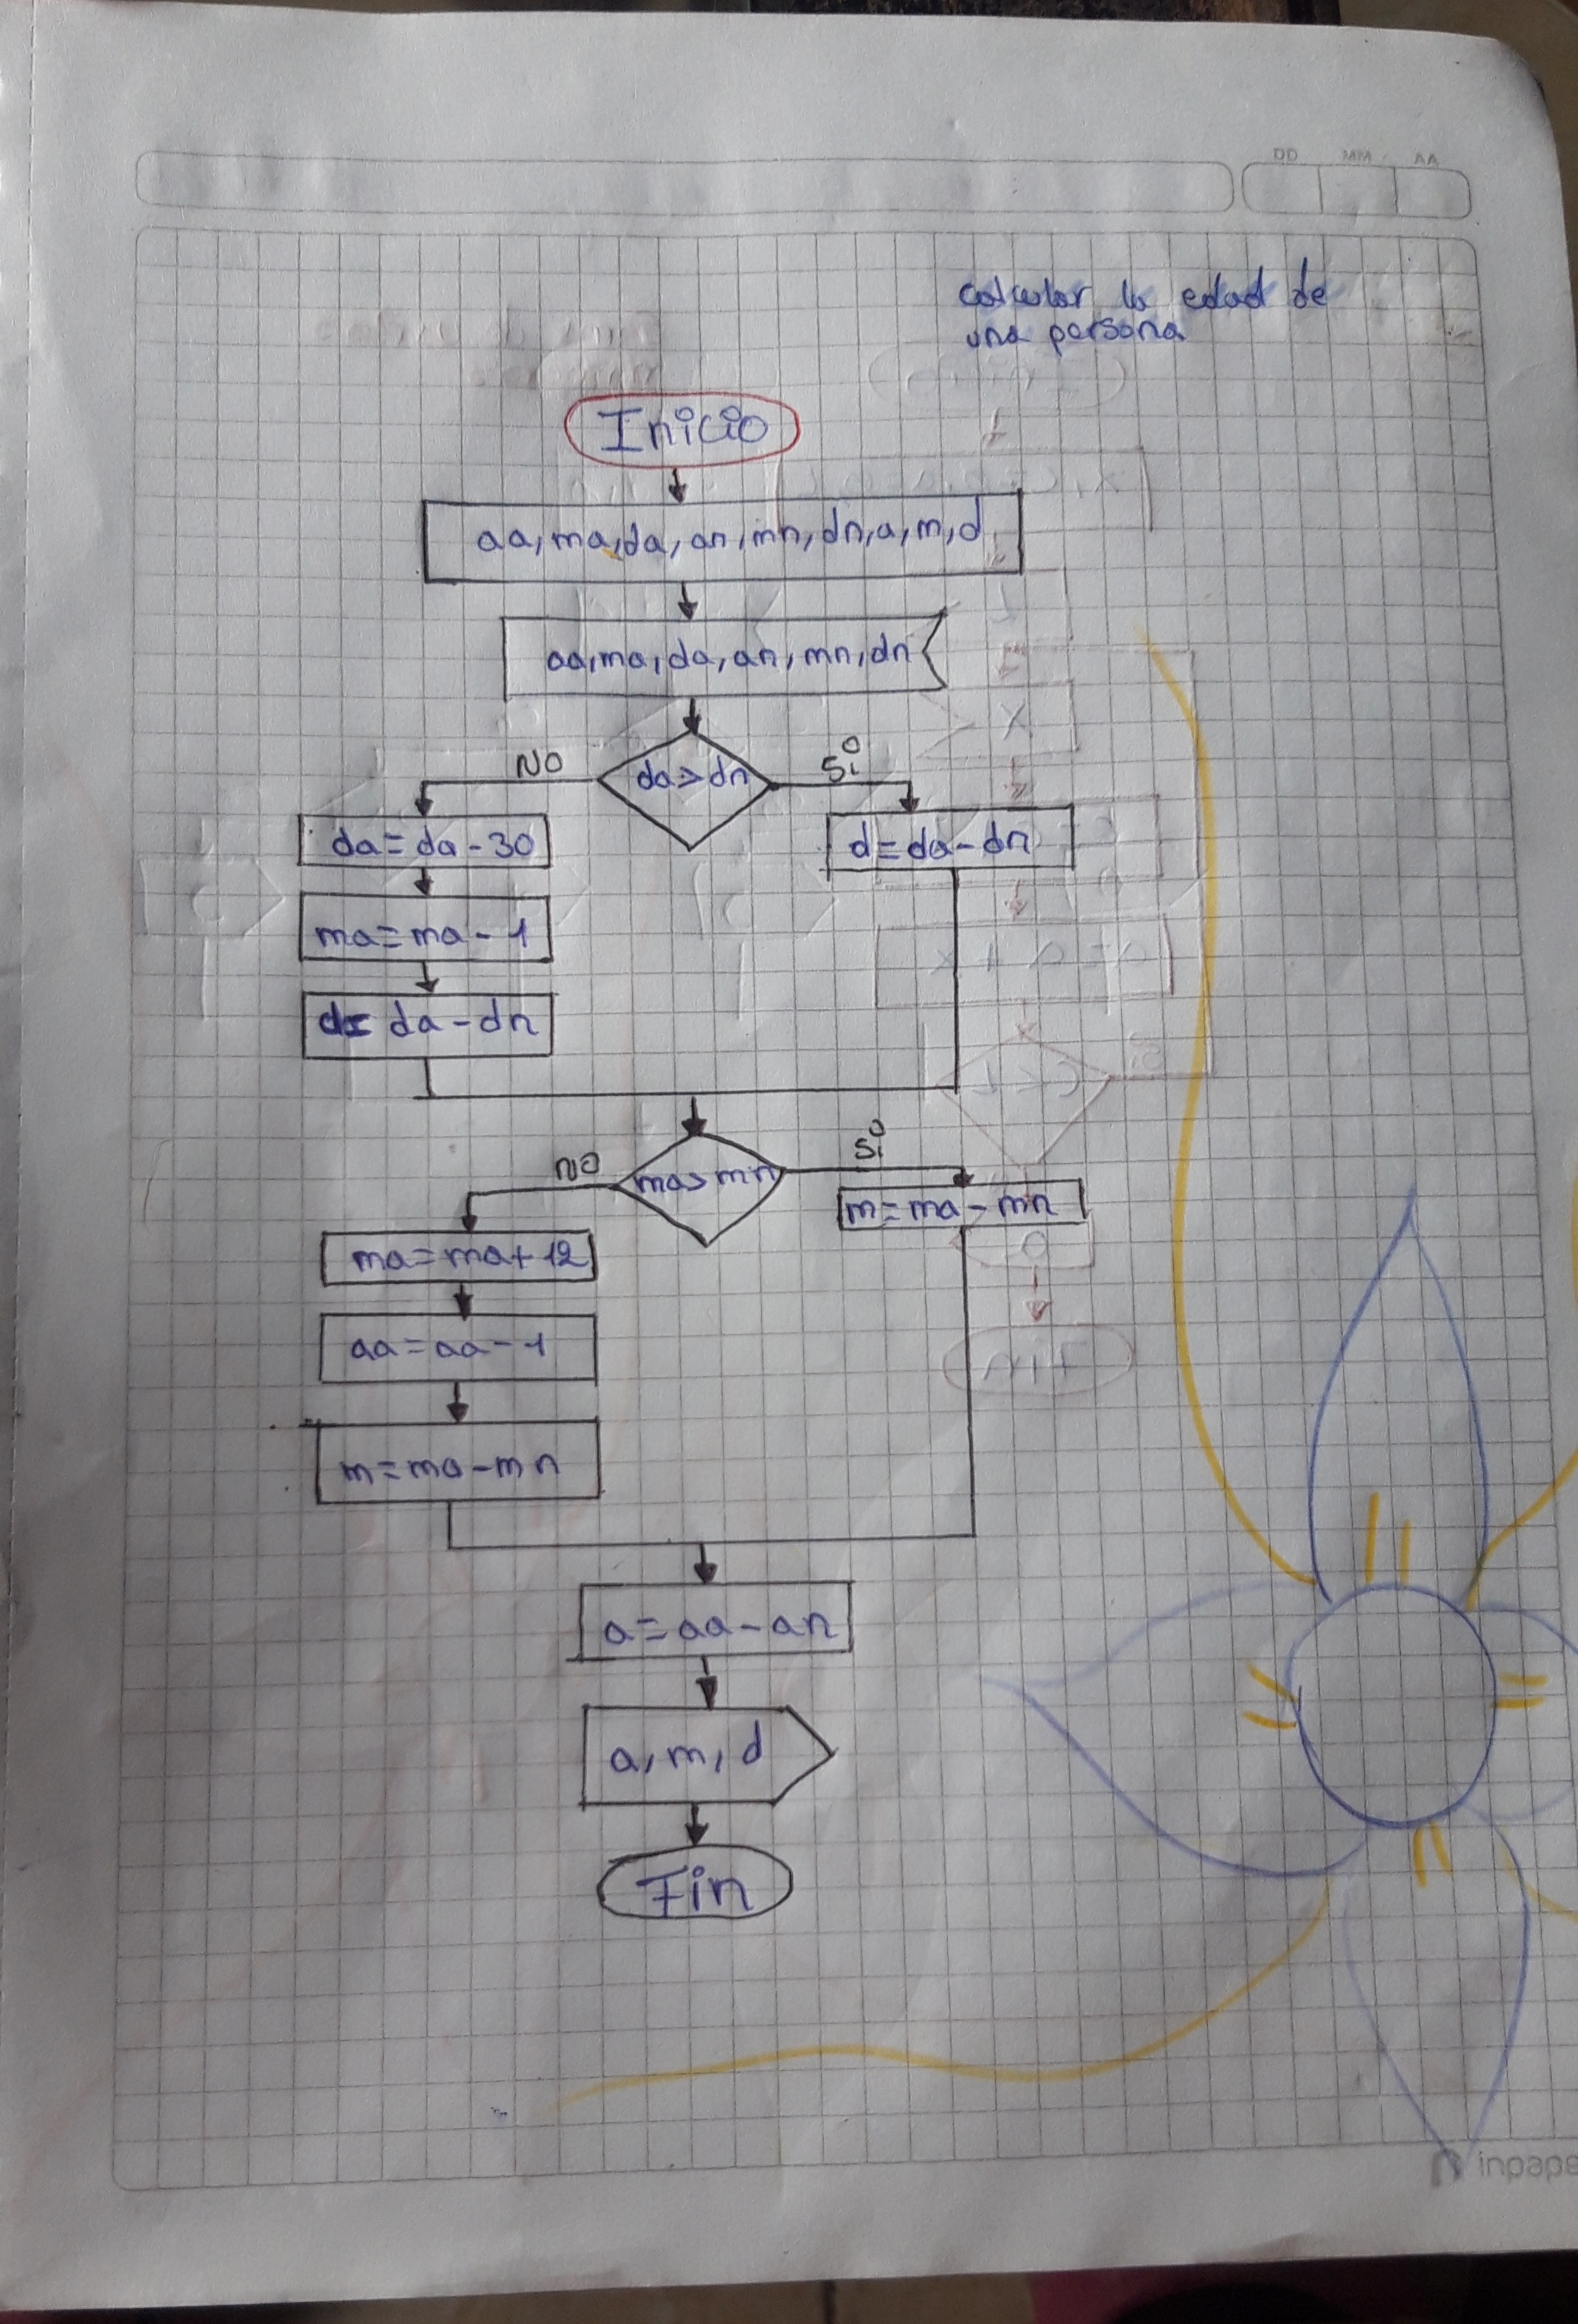 DD MM AA
calcular la edad de
una persona
Inicio
aa, ma, da, an, mn, dn, a, m, d
aa, ma, da, an, mn, dn
da > dn
NO
Si
da = da - 30
d = da - dn
ma = ma - 1
d = da - dn
ma > mn
NO
Si
m = ma - mn
ma = ma + 12
aa = aa - 1
m = ma - mn
a = aa - an
a, m, d
Fin